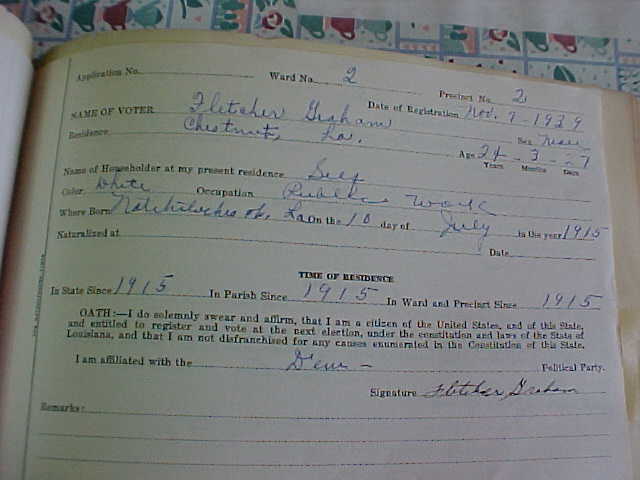 Application No. Ward No. 2 Precinct No. 2
NAME OF VOTER Fletcher Graham Date of Registration Nov. 7 - 1939
Residence Chestnut, La. Sex Male
Age 24 - 3 - 27
Years Months Days
Name of Householder at my present residence Self
Color White Occupation Public Work
Where Born Natchitoches Ph, La on the 10 day of July in the year 1915
Naturalized at Date
TIME OF RESIDENCE
In State Since 1915 In Parish Since 1915 In Ward and Precinct Since 1915
OATH:—I do solemnly swear and affirm, that I am a citizen of the United States, and of this State,
and entitled to register and vote at the next election, under the constitution and laws of the State of
Louisiana, and that I am not disfranchised for any causes enumerated in the Constitution of this State.
I am affiliated with the Dem - Political Party.
Signature Fletcher Graham
Remarks: